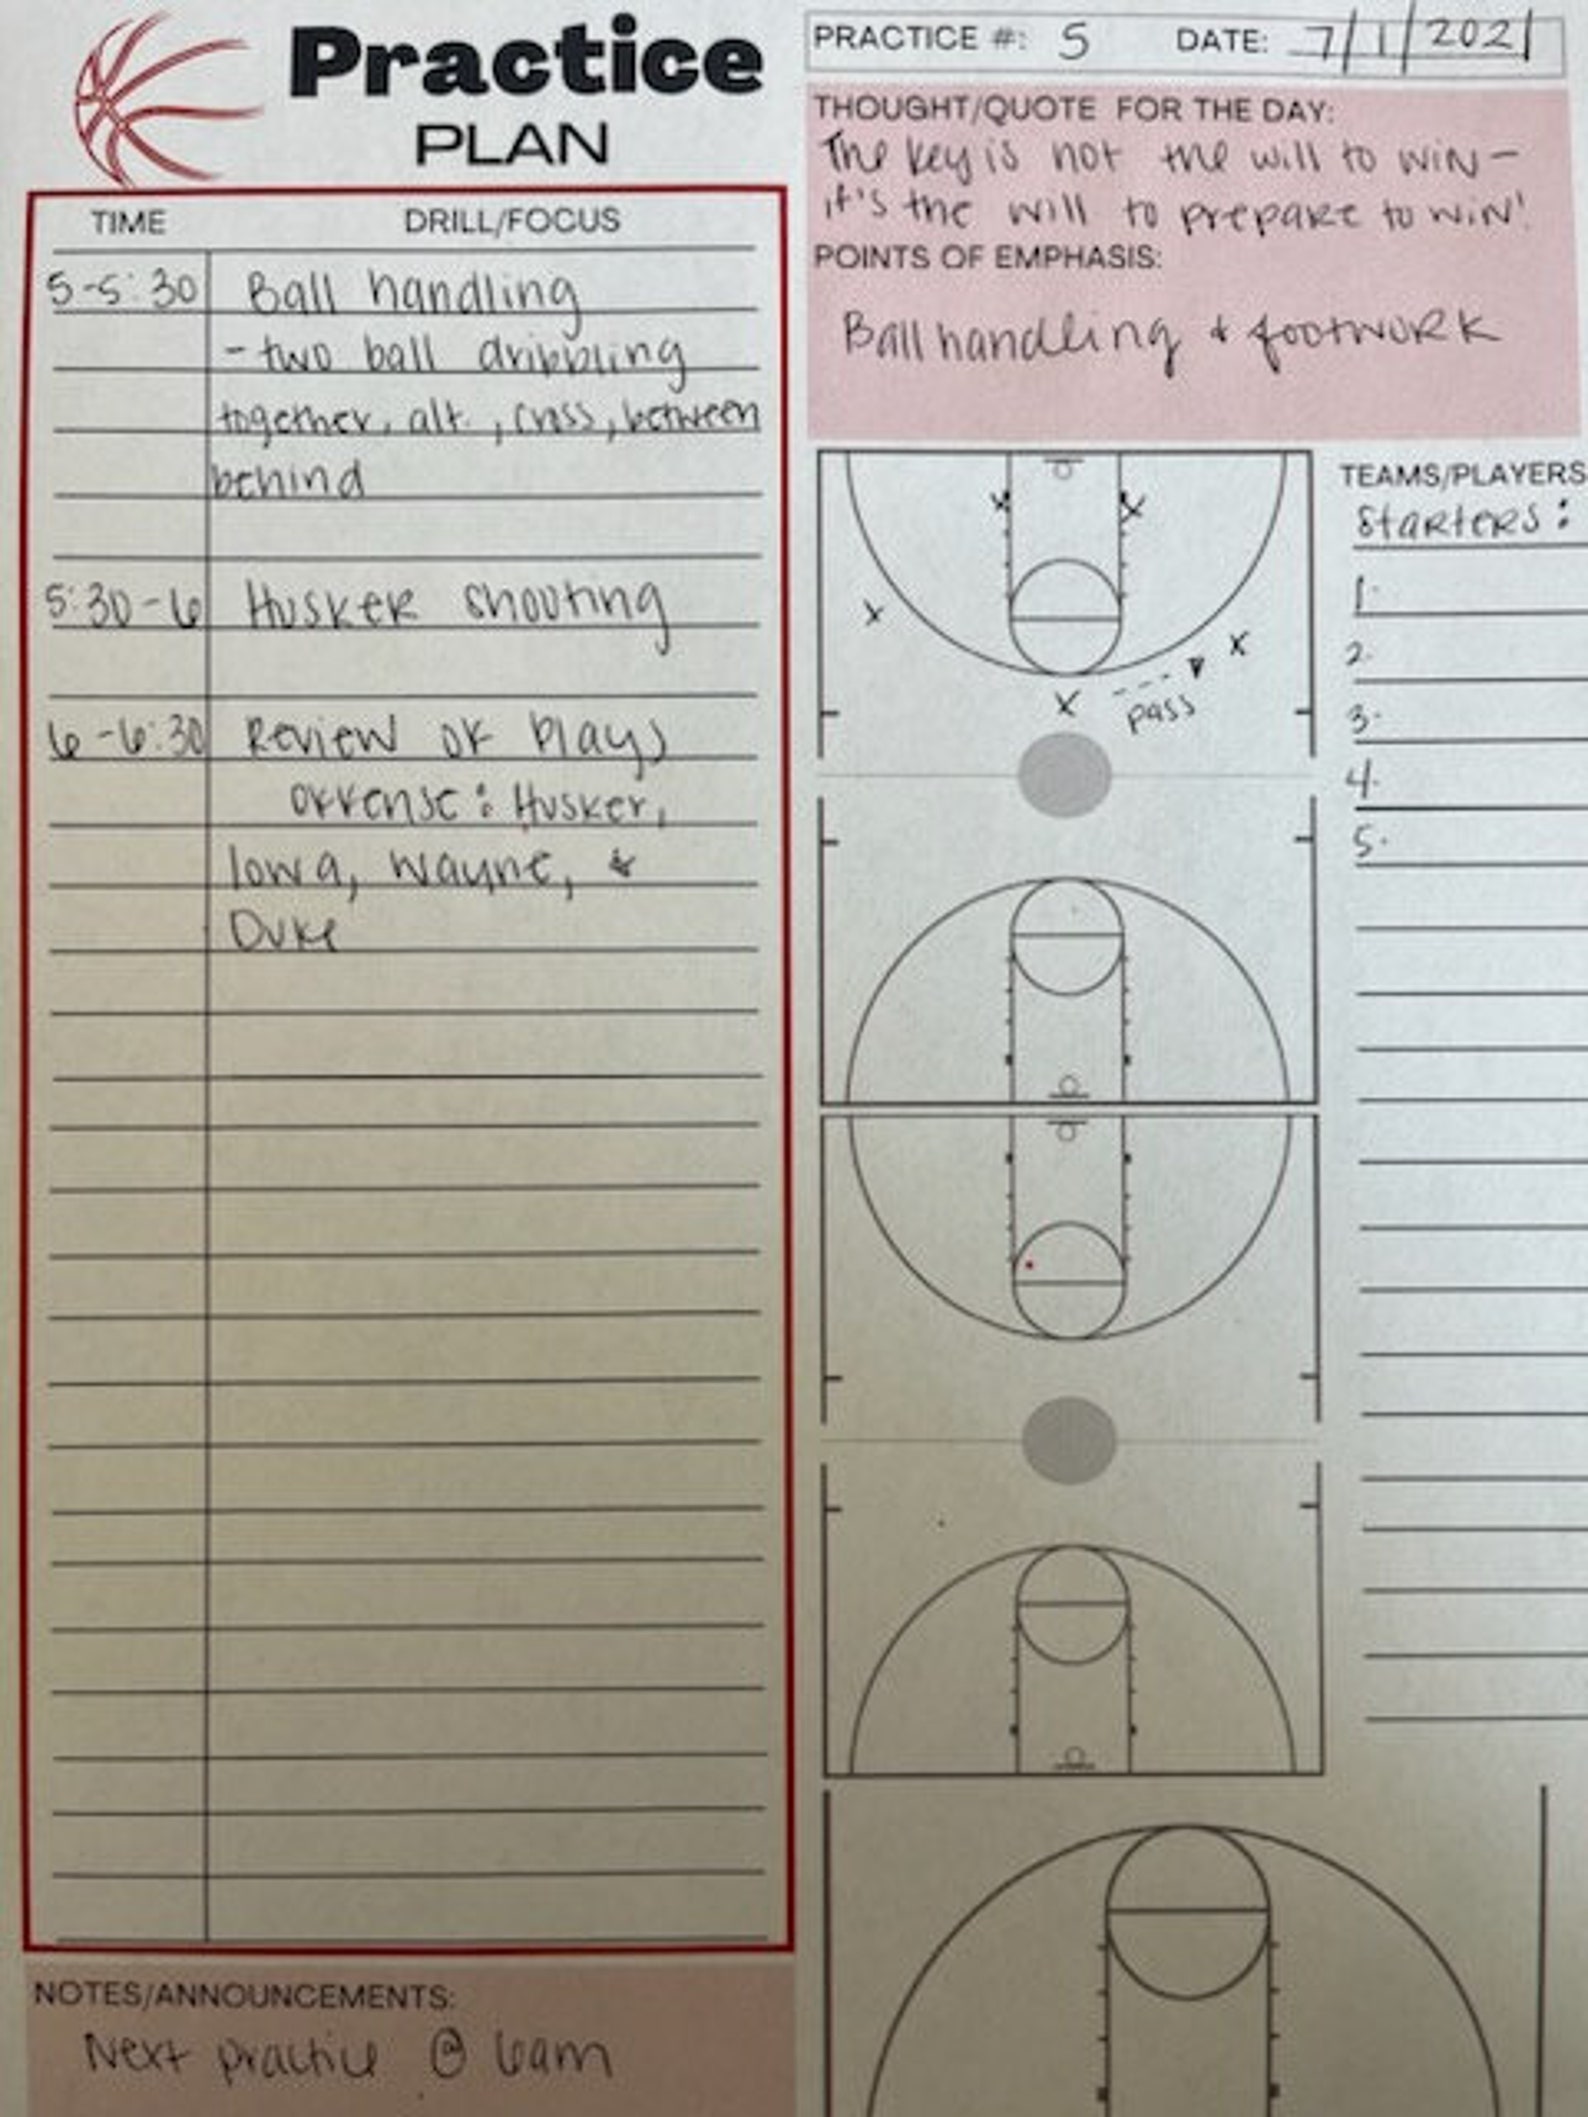 Practice
PLAN
PRACTICE #: 5 DATE: 7/1/2021
THOUGHT/QUOTE FOR THE DAY:
The key is not the will to win –
it's the will to prepare to win!
POINTS OF EMPHASIS:
Ball handling & footwork
TIME DRILL/FOCUS
5-5:30 Ball handling
- two ball dribbling
together, alt., cross, between
behind
5:30-6 Husker shooting
6-6:30 Review of plays
offense: Husker,
Iowa, Wayne, &
Duke
X X
X X
X pass
TEAMS/PLAYERS
Starters:
1.
2.
3.
4.
5.
NOTES/ANNOUNCEMENTS:
Next practice @ 6am